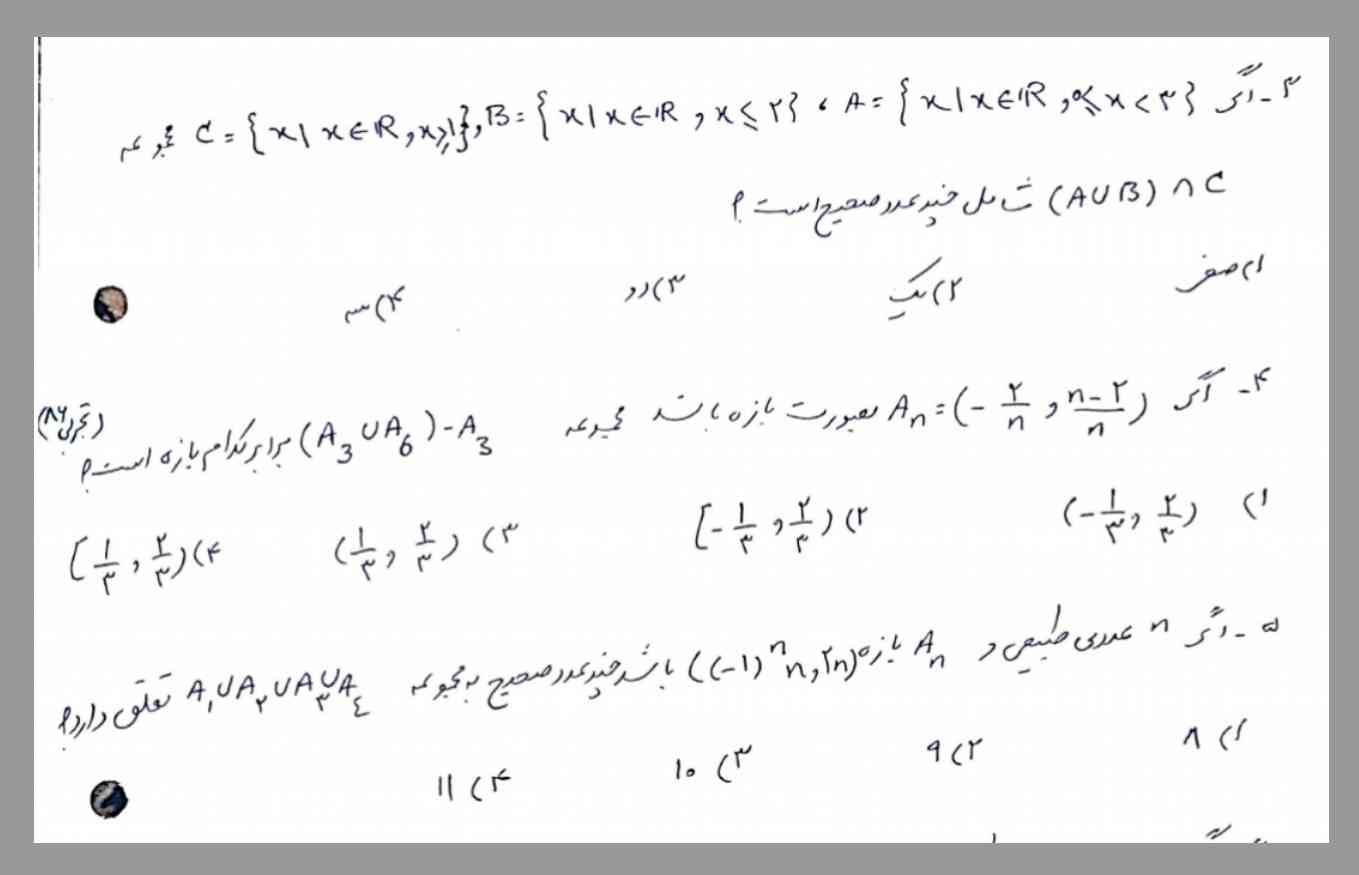 ۳- اگر A = {x | x ∈ ℝ , ۰ ≤ x < ۳} ، B = {x | x ∈ ℝ , x ≤ ۲} , C = {x | x ∈ ℝ , x ≥ ۱} مجموعه
(A ∪ B) ∩ C شامل چند عدد صحیح است ؟
۱) صفر ۲) یک ۳) دو ۴) سه
۴- اگر A_n = (-۲/n , (n-۲)/n) بصورت بازه باشد مجموعه (A_3 ∪ A_6) - A_3 برابر کدام بازه است ؟ (تجربی ۸۶)
۱) (-۱/۳ , ۲/۳) ۲) [-۱/۳ , ۲/۳) ۳) (۱/۳ , ۲/۳) ۴) [۱/۳ , ۲/۳)
۵- اگر n عددی طبیعی و A_n بازه ((-۱)^n n , ۲n) باشد چند عدد صحیح به مجموعه A_۱ ∪ A_۲ ∪ A_۳ ∪ A_٤ تعلق دارد ؟
۱) ۸ ۲) ۹ ۳) ۱۰ ۴) ۱۱